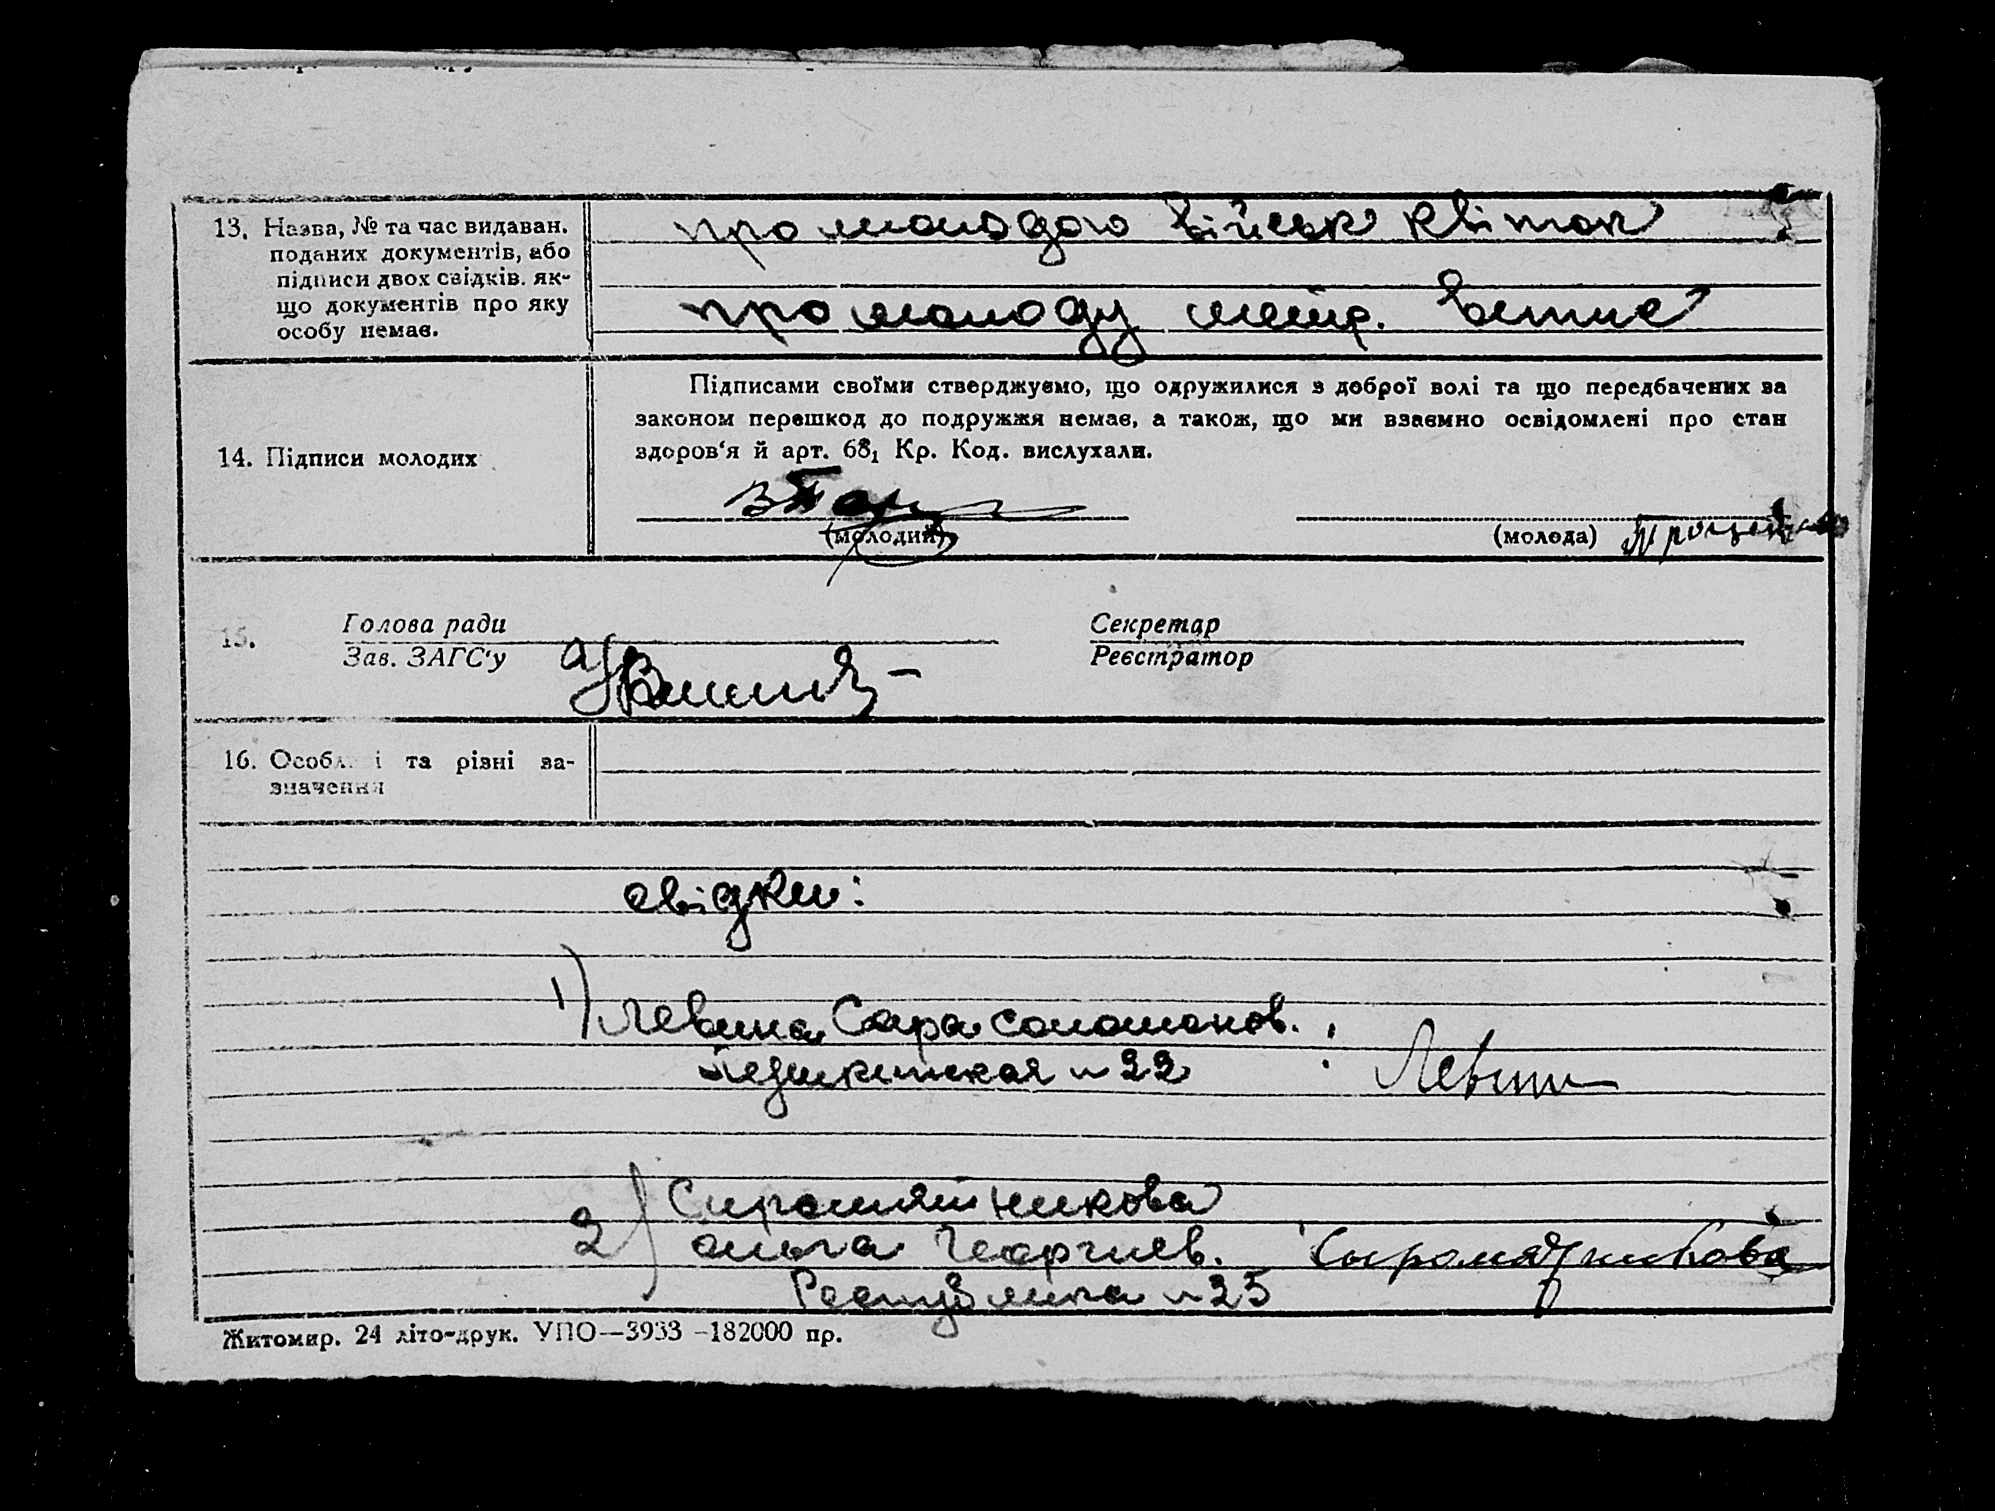 13. Назва, № та час видаван.
поданих документів, або
підписи двох свідків. як-
що документів про яку
особу немає.
про молодого військ квіток
про молоду метр. витис
14. Підписи молодих
Підписами своїми стверджуємо, що одружилися з доброї волі та що передбачених за
законом перешкод до подружжя немає, а також, що ми взаємно освідомлені про стан
здоров'я й арт. 68₁ Кр. Код. вислухали.
(молодий)
(молода)
15.
Голова ради
Зав. ЗАГС'у
Секретар
Реєстратор
16. Особл і та різні за-
значення
свідки:
1) Левина Сара соломонов.
22
Левин
2) Сиромятникова
ольга Георгиев. Сыромятникова
Республика 25
Житомир. 24 літо-друк. УПО—3933 –182000 пр.